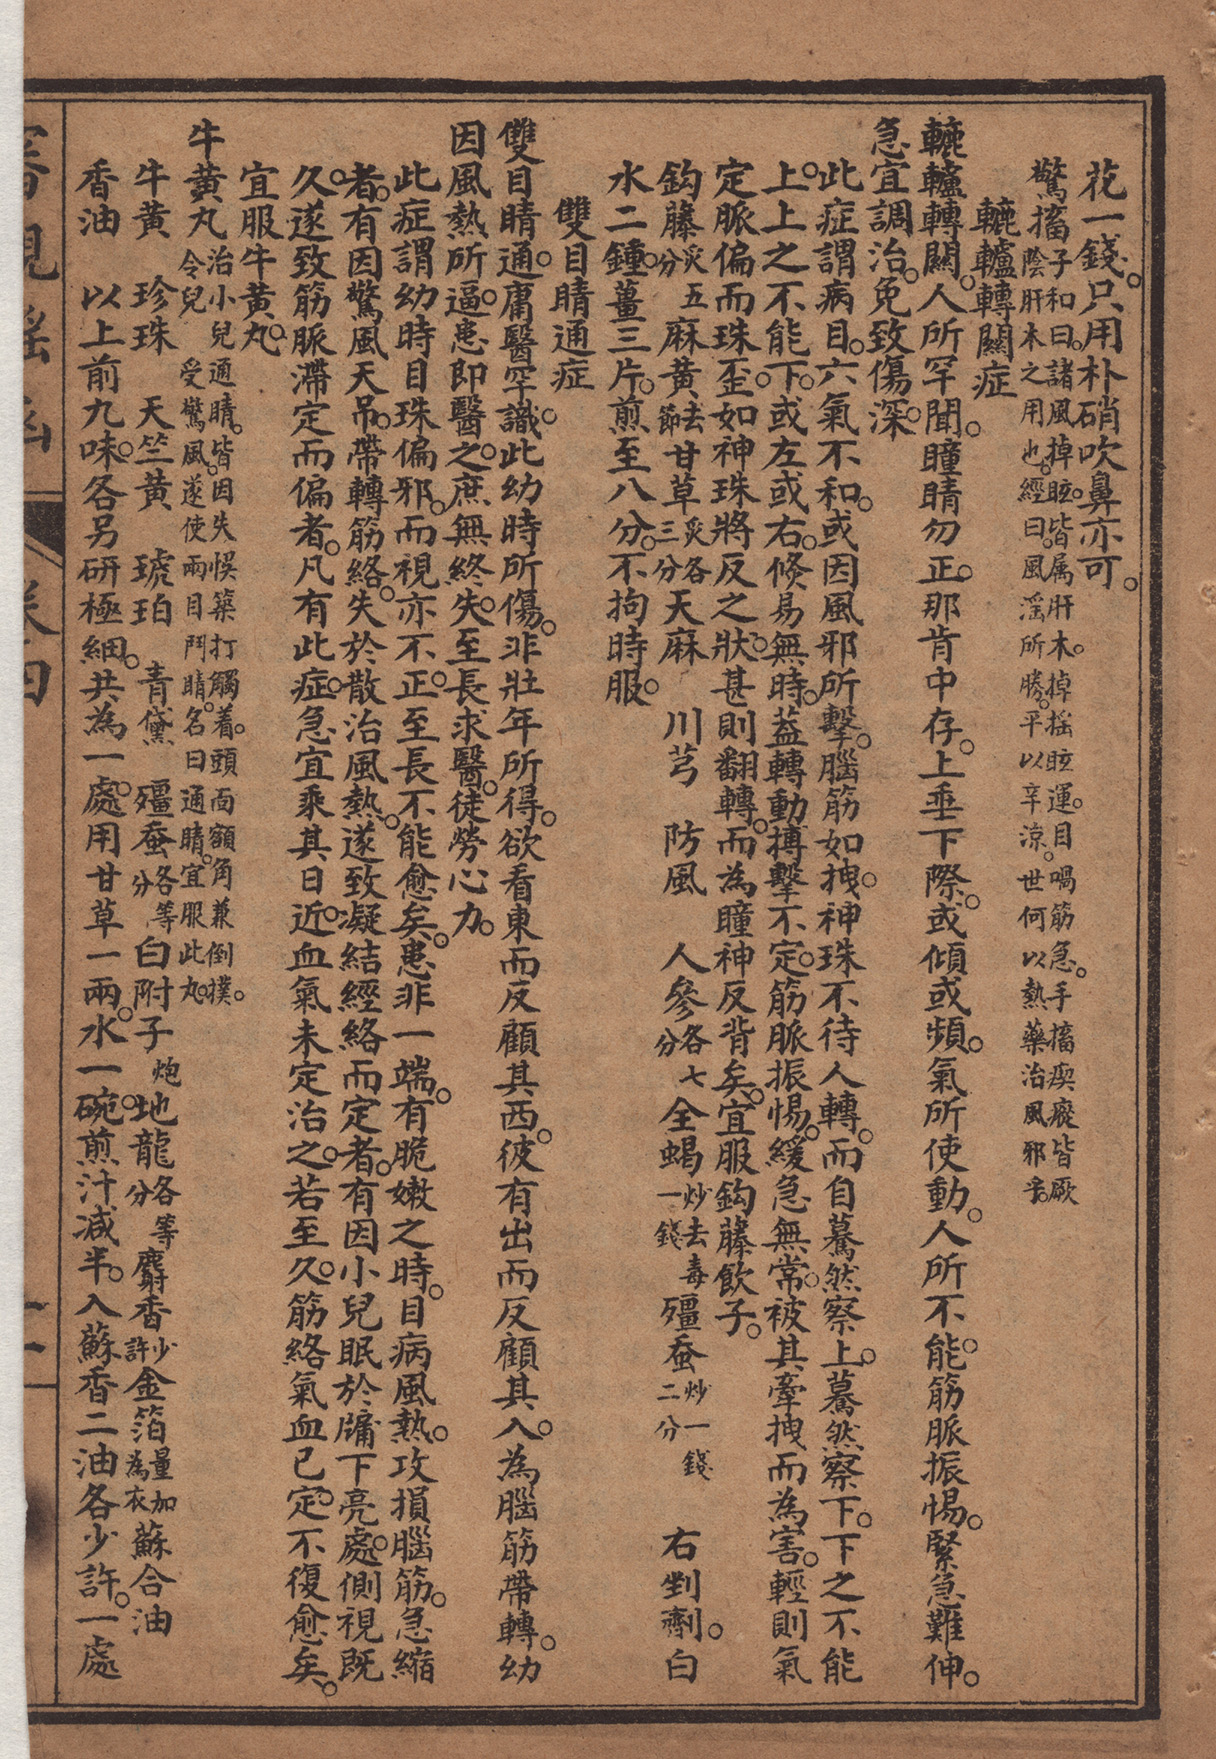 花一錢。只用朴硝吹鼻亦可。
驚搐子和曰。諸風掉眩。皆属肝木。掉摇眩運。目喎筋急。手搐瘈瘲皆厥
陰肝木之用也。經曰。風淫所勝。平以辛涼。世何以熱藥治風邪乎。
轆轤轉關症
轆轤轉關。人所罕聞。瞳睛勿正。那肯中存。上垂下際。或傾或頻。氣所使動。人所不能。筋脈振惕。緊急難伸。
急宜調治。免致傷深。
此症謂病目。六氣不和。或因風邪所擊。腦筋如拽。神珠不待人轉。而自驀然察上。驀然察下。下之不能
上。上之不能下。或左或右。倐易無時。葢轉動搏擊不定。筋脈振惕。緩急無常。被其牽拽而為害。輕則氣
定脈偏而珠歪。如神珠將反之狀。甚則翻轉。而為瞳神反背矣。宜服鈎藤飲子。
鈎藤炙五分麻黄去節甘草炙各三分天麻 川芎 防風 人參各七分全蝎炒去毒一錢殭蚕炒一錢二分 右剉劑。白
水二鍾。薑三片。煎至八分。不拘時服。
雙目睛通症
雙目睛通。庸醫罕識。此幼時所傷。非壯年所得。欲看東而反顧其西。彼有出而反顧其入。為腦筋帶轉。幼
因風熱所逼。患即醫之。庶無終失。至長求醫。徒勞心力。
此症謂幼時目珠偏邪。而視亦不正。至長不能愈矣。患非一端。有脆嫩之時。目病風熱。攻損腦筋。急縮
者。有因驚風天吊。帶轉筋絡。失於散治風熱。遂致凝結經絡而定者。有因小兒眠於牖下亮處。側視既
久。遂致筋脈滯定而偏者。凡有此症。急宜乘其日近。血氣未定治之。若至久。筋絡氣血已定。不復愈矣。
宜服牛黄丸。
牛黄丸治小兒通睛。皆因失悞築打觸着。頭面額角兼倒撲。
令兒受驚風。遂使兩目鬥睛。名曰通睛。宜服此丸。
牛黄 珍珠 天竺黄 琥珀 青黛 殭蚕各等分白附子炮地龍各等分麝香少許金箔量加為衣蘇合油
香油 以上前九味。各另研極細。共為一處。用甘草一兩。水一碗。煎汁減半。入蘇香二油各少許。一處